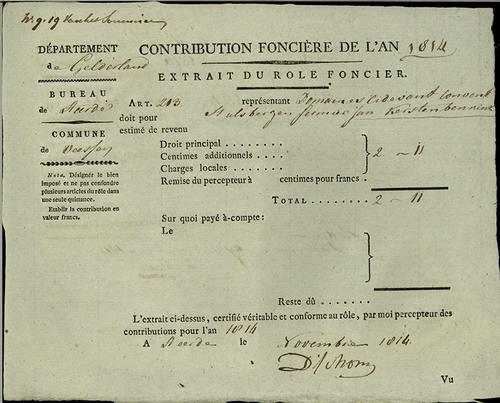 CONTRIBUTION FONCIÈRE DE L'AN 1814
EXTRAIT DU ROLE FONCIER.
DÉPARTEMENT
de Gelderland
BUREAU
de Heerde
COMMUNE
de Vaassen
Nota. Désigner le bien
imposé et ne pas confondre
plusieurs articles du rôle dans
une seule quittance.
Etablir la contribution en
valeur francs.
ART. 213 représentant Domaines cidevant convent
doit pour Hulsbergen fermier jan
estimé de revenu
Droit principal
Centimes additionnels
Charges locales
2 - 11
Remise du percepteur à centimes pour francs.
TOTAL 2 - 11
Sur quoi payé à-compte:
Le
Reste dû
L'extrait ci-dessus, certifié véritable et conforme au rôle, par moi percepteur des
contributions pour l'an 1814
A Heerde le Novembre 1814.
Vu